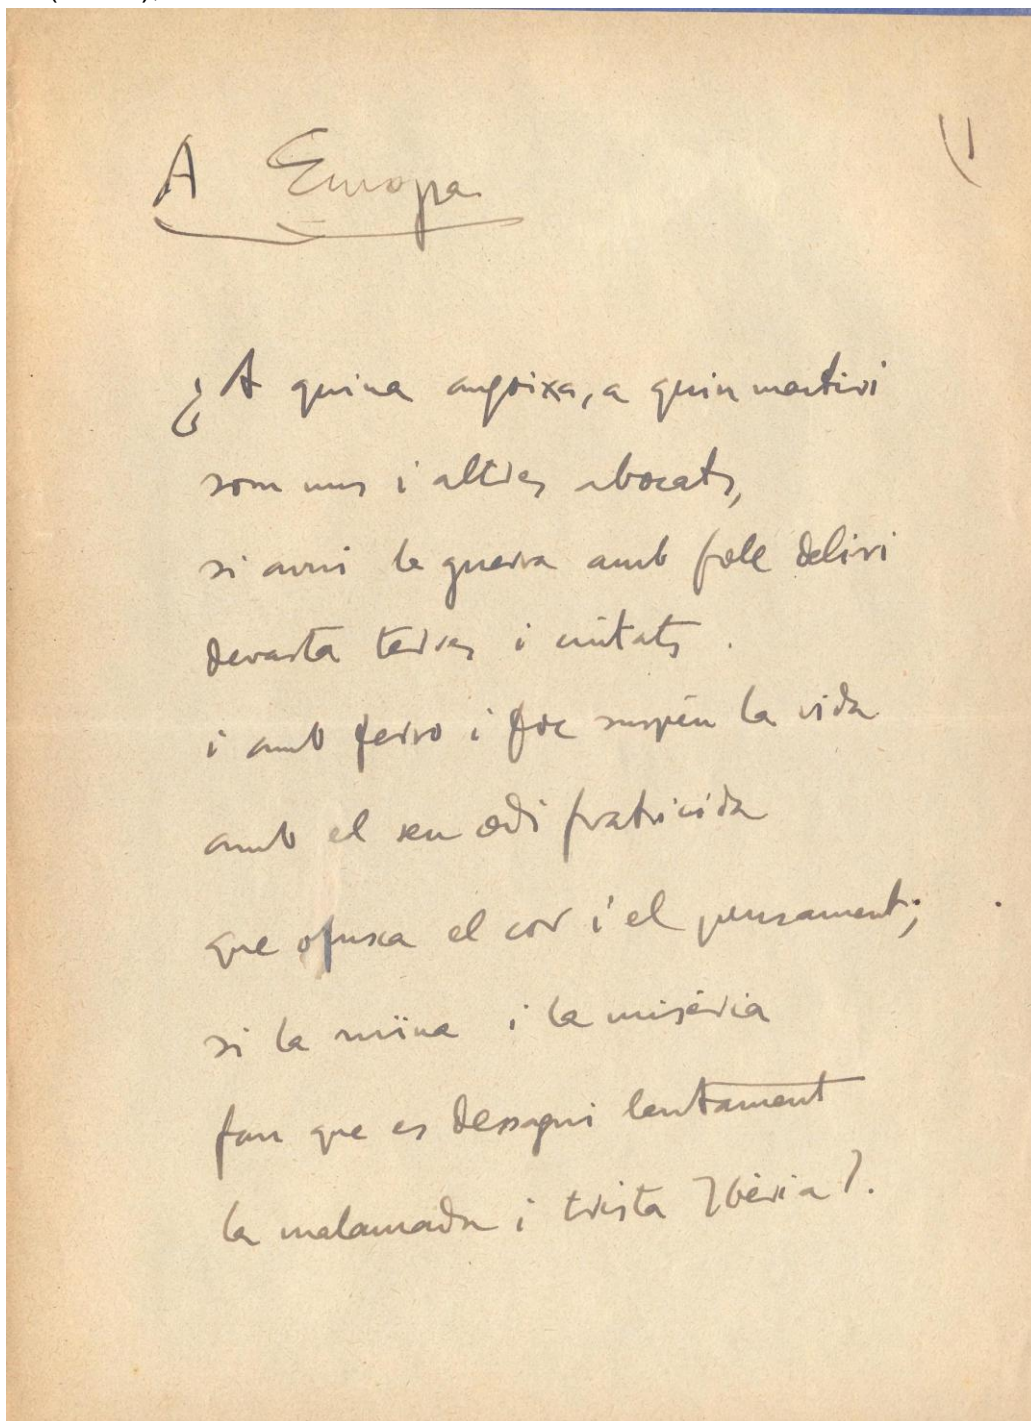 A Europa
1)
¿A quina angoixa, a quin martiri
som uns i altres abocats,
si avui la guerra amb foll deliri
devasta terres i ciutats.
i amb ferro i foc suspèn la vida
amb el seu odi fratricida
que ofusca el cor i el pensament;
si la ruïna i la misèria
fan que es dessagni lentament
la malamada i trista Ibèria?.